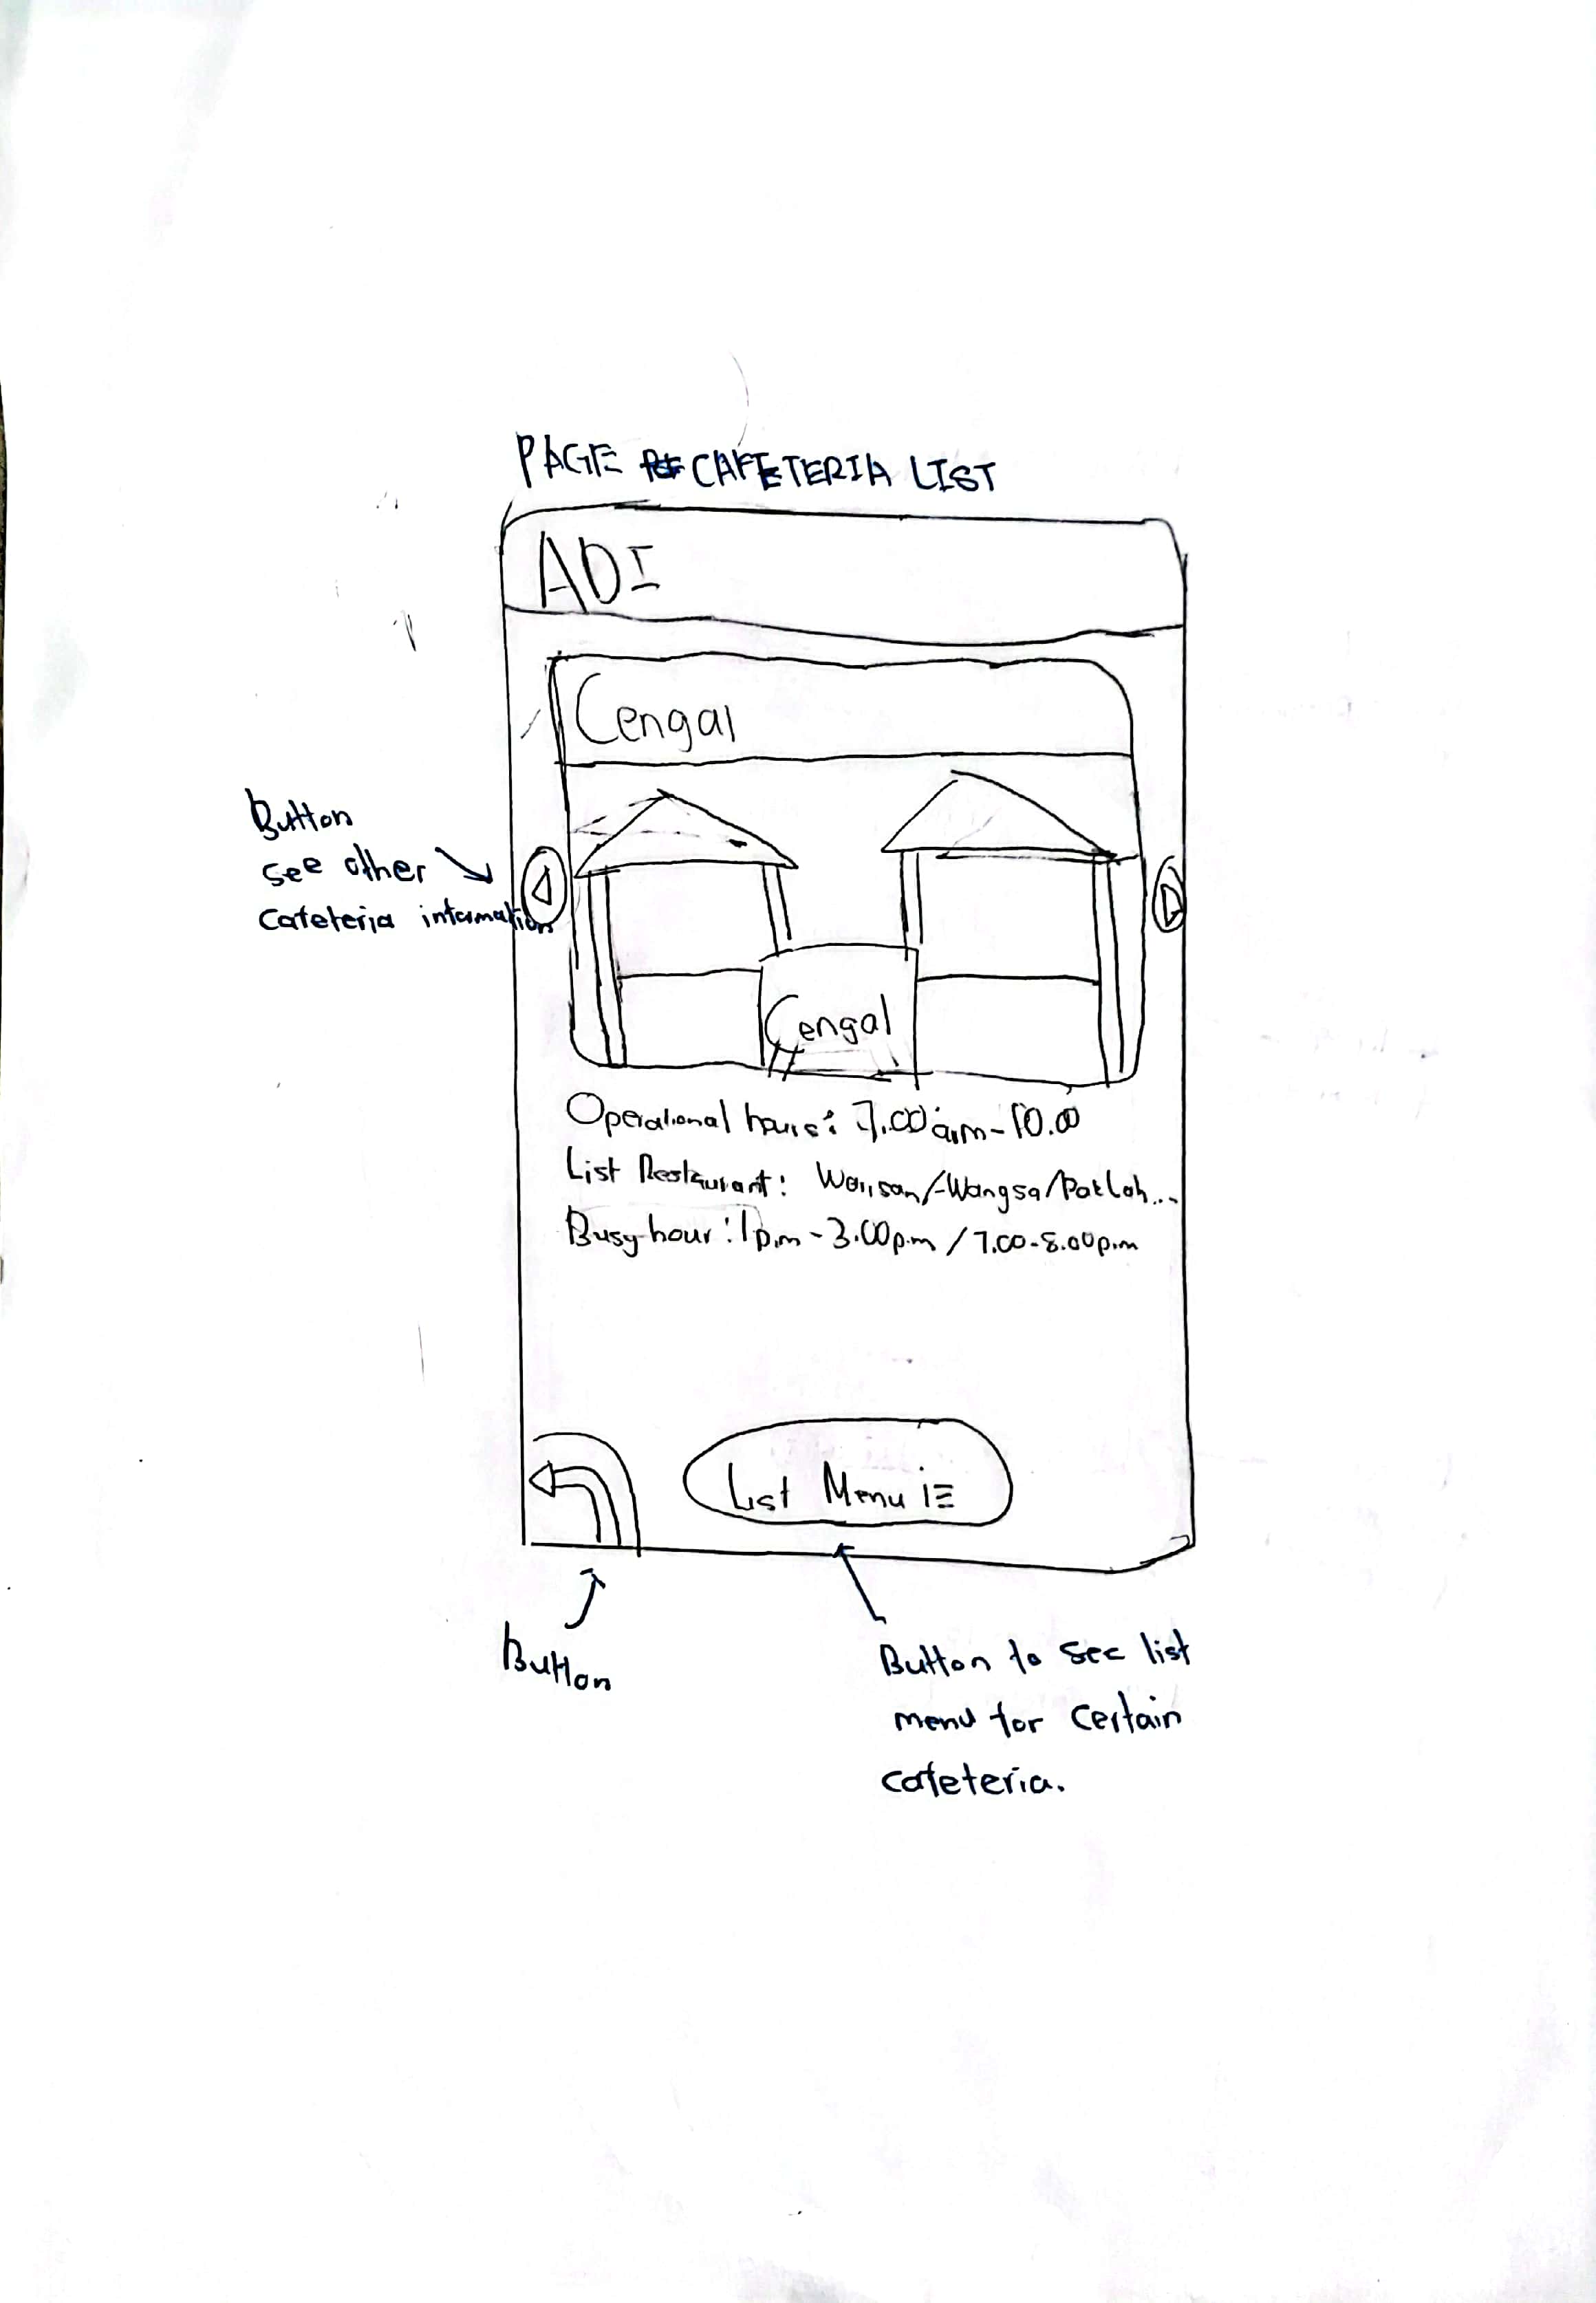 PAGE CAFETERIA LIST
ADI
Cengal
Button
see other
cafeteria information
Cengal
Operational hours: 7.00 a.m - 10.00
List Restaurant: Warisan/Wangsa/Pak Lah...
Busy hour: 1p.m - 3.00p.m / 7.00-8.00p.m
List Menu
Button
Button to see list
menu for certain
cafeteria.